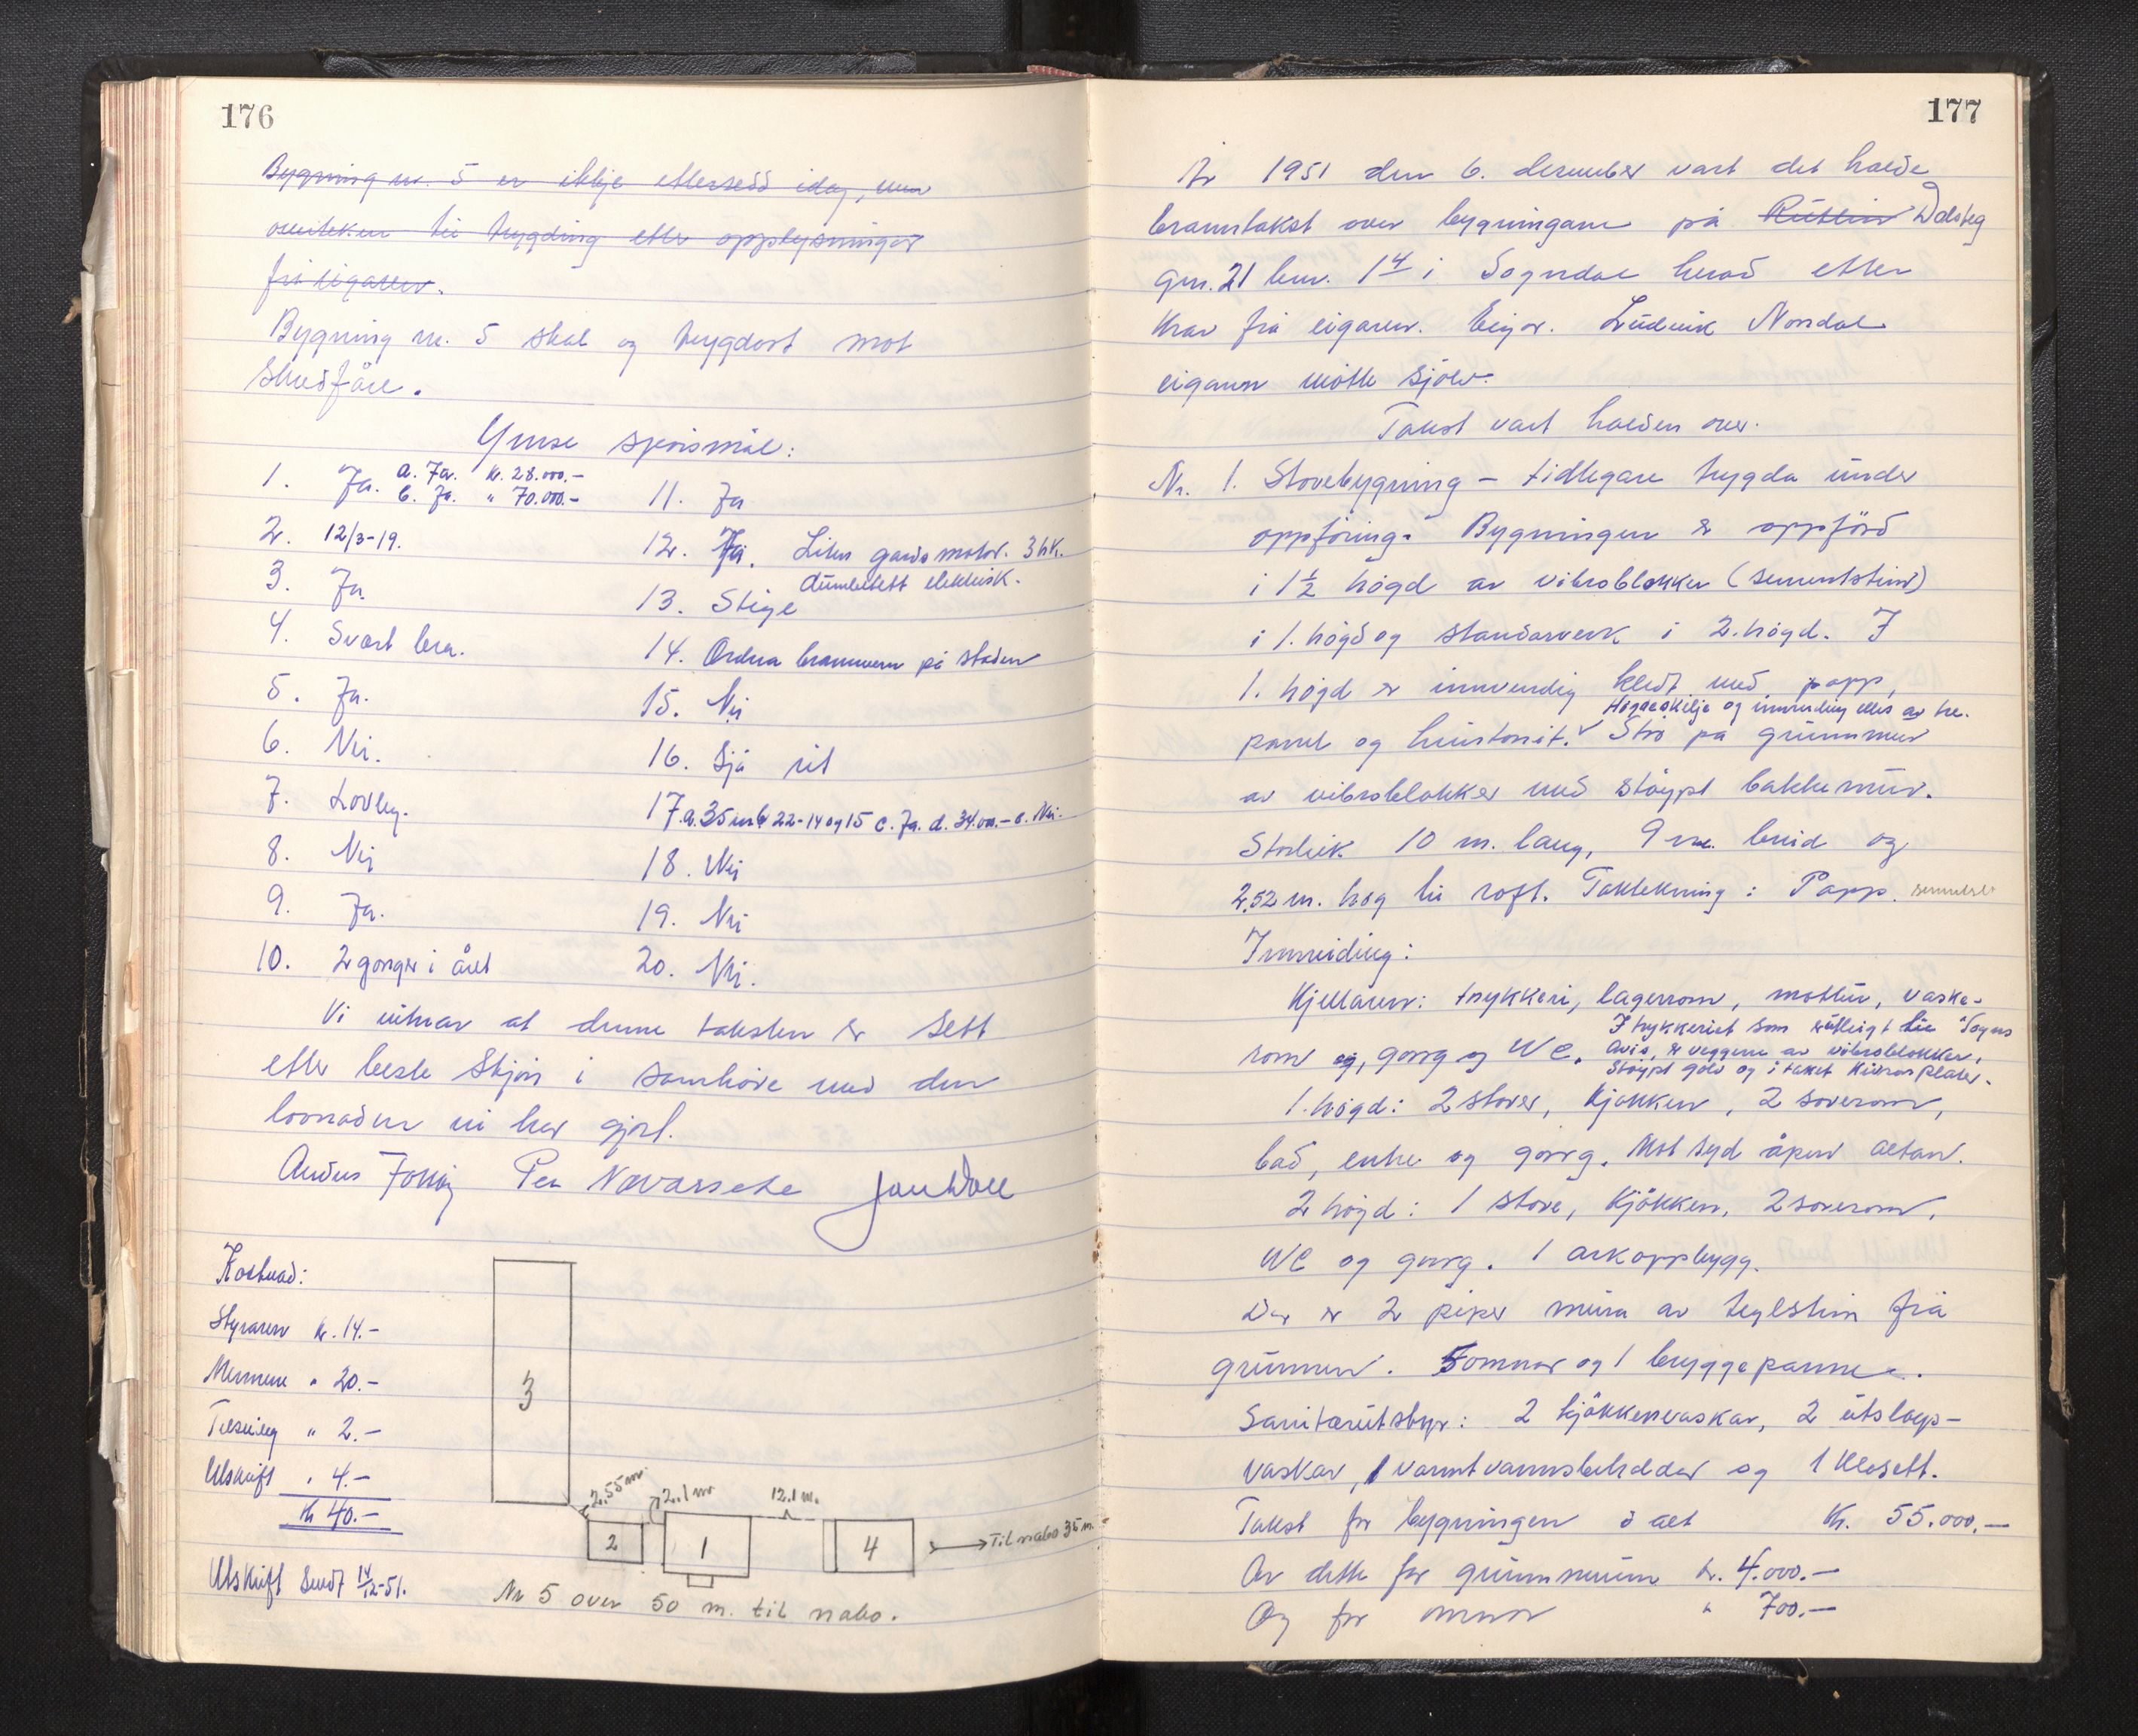 176
Bygning nr. 5 er ikkje ettersedd idag, men
omteken til trygding etter opplysningar
frå eigaren.
Bygning nr. 5 skal og trygdast mot
skredfåre.
Ymse spörsmål:
1. Ja. a. Ja. kr. 28.000.-
b. Ja. " 70.000.-
2. 12/3-19.
3. Ja.
4. Svært bra.
5. Ja.
6. Nei.
7. Lovleg.
8. Nei
9. Ja.
10. 2 gonger i året
11. Ja
12. Ja. Liten gardsmotor. 3 hk.
elektrisk.
13. Stige
14. Ordna brannvern på staden
15. Nei
16. Sjå rit
17. a. 35 m b 22-14 og 15 c. Ja. d. 34.000.- e. Nei.
18. Nei
19. Nei
20. Nei.
Vi vitnar at denne taksten er sett
etter beste skjön i samhöve med den
lovnaden vi har gjort.
Per Navarsete
Kostnad:
Styraren kr. 14.-
Mennene " 20.-
" 2.-
Utskrift " 4.-
kr 40.-
Utskrift sendt 14/12-51.
3
2.55 m
2.1 m
12.1 m.
2
1
4
Til nabo 35 m.
Nr 5 over 50 m. til nabo.
177
År 1951 den 6. desember vart det halde
branntakst over bygningane på Rutlin Dalsteg
gnr. 21 bnr. 14 i Sogndal herad etter
krav frå eigaren. Eigar. Ludvik Norsdal
eigaren mötte sjölv.
Takst vart halden over.
Nr. 1. Stovebygning – tidlegare trygda under
oppföring. Bygningen er oppförd
i 1½ högd av vibroblokker (sementstein)
i 1. högd og standarverk i 2. högd. I
1. högd er innvendig kledt med papp,
Högdeskilje og innreiing elles av tre.
panel og huntonit. Står på grunnmur
av vibroblokker med stöypt bakkemur.
Storleik 10 m. lang, 9 m. breid og
2,52 m. høg til roft. Taktekning: Papp.
Innreiding:
Kjellaren: trykkeri, lagerrom, mattur, vaske-
rom og, gang og WC. I trykkeriet som er utleigt til "Sogns
Avis, er veggene av vibroblokker.
Stöypt golv og i taket
1. högd: 2 stover, kjökken, 2 soverom,
bad, entre og gang. Mot syd åpen altan.
2 högd: 1 stove, kjökken, 2 soverom,
WC og gang. 1 arkoppbygg.
Der er 2 piper mura av teglstein frå
grunnen. 5 omnar og 1 bryggepanne.
Sanitærutstyr: 2 kjökkenvaskar, 2 utslags-
vaskar, 1 varmtvannsbeholdar og 1 klosett.
Takst for bygningen i alt kr. 55.000.-
Av dette for grunnmuren kr. 4.000.-
Og for omnar " 700.-